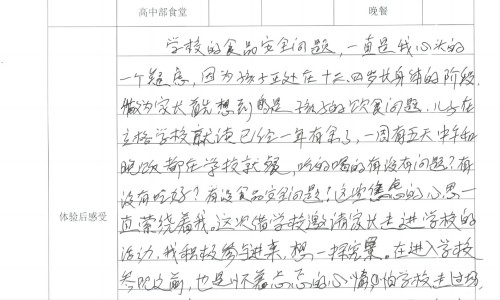 高中部食堂 晚餐
学校的食品安全问题，一直是我心头的
一个疑虑，因为孩子正处在十三四岁长身体的阶段，
做为家长首先想到的是孩子的饮食问题。儿子在
立格学校就读已经一年有余了，一周有五天中午和
晚饭都在学校就餐，吃的喝的有没有问题？有
没有吃好？有没食品安全问题？这些焦虑的心思一
直萦绕着我。这次借学校邀请家长走进学校的
体验后感受
活动，我积极参与进来，想一探究竟。在进入学校
参观之前，也是怀着忐忑的心情，怕学校走过场，